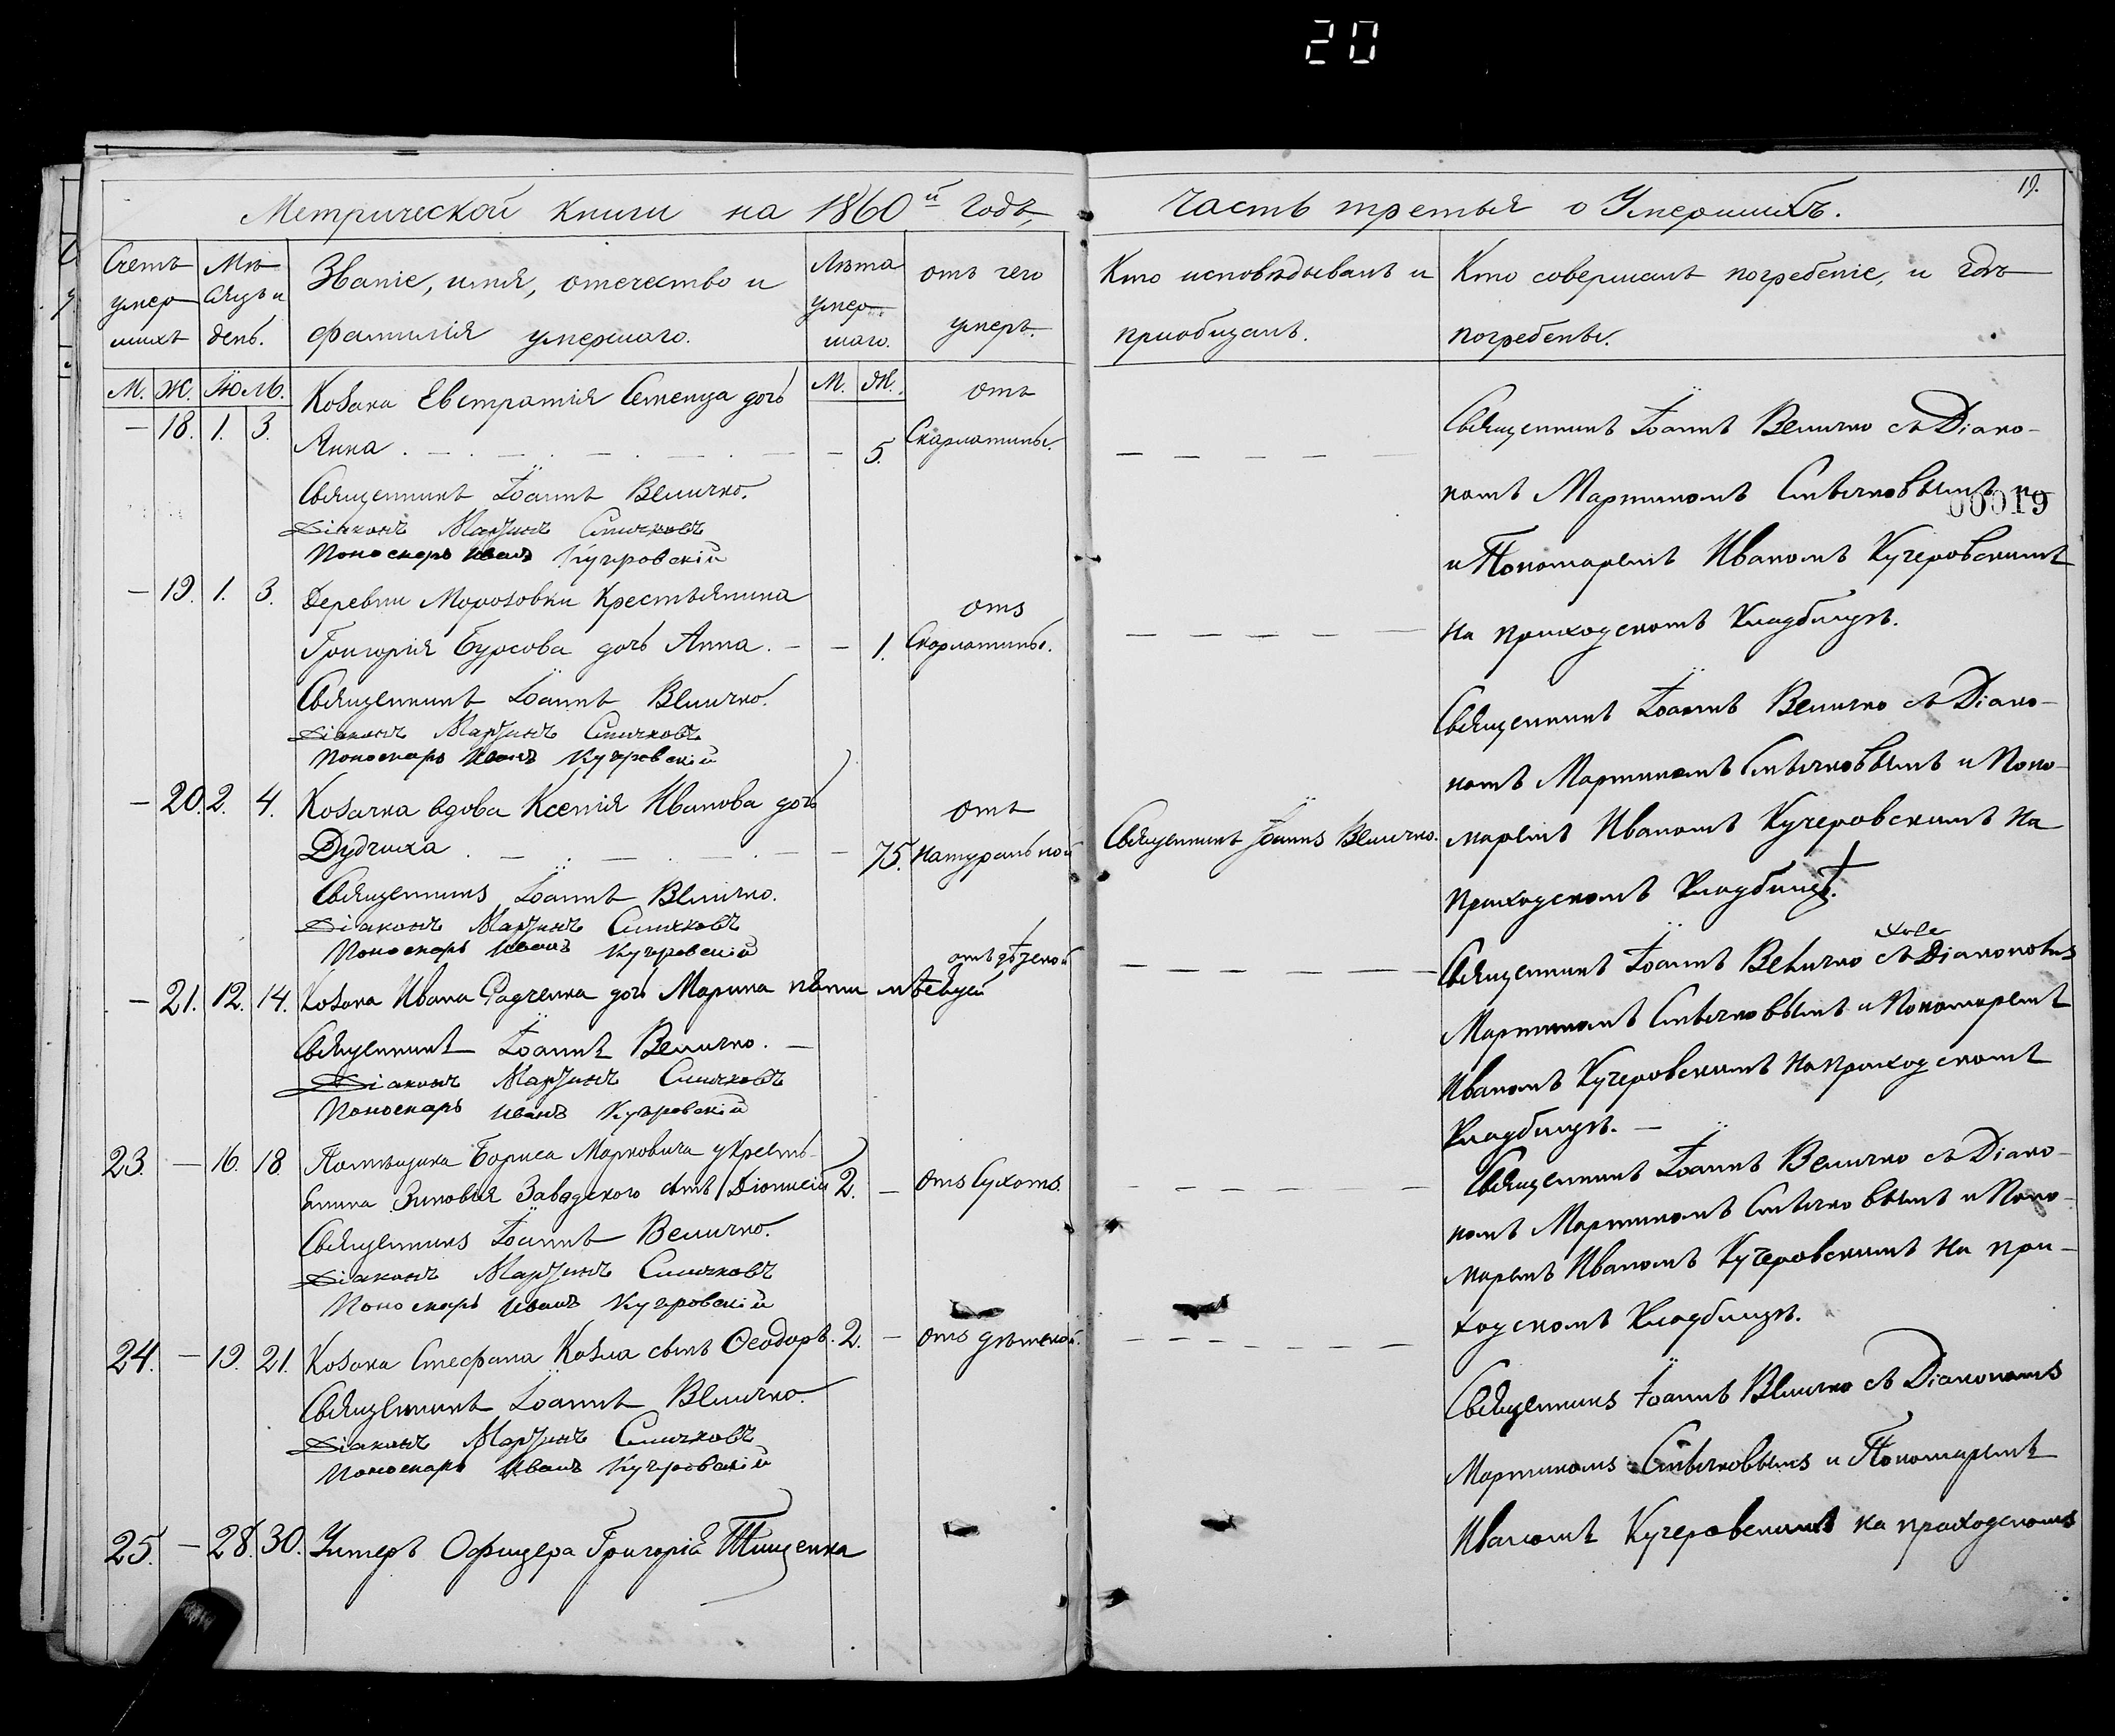 20
19.
Метрической книги на 1860й годъ,
Часть третья о Умершихъ.
Счетъ умер шихъ
Мѣ сяцъ и день.
Званіе, имя, отечество и фамилія умершаго.
Лѣта умер шаго.
отъ чего умеръ.
Кто исповѣдывалъ и пріобщалъ.
Кто совершалъ погребеніе, и гдѣ погребены.
М. Ж. Іюль. М. Ж.
— 18. 1. 3. Козака Евстратія Семенца дочь
Анна . — . — . — . — — 5. отъ Скарлатины.
Священникъ Іоаннъ Величко.
Діаконъ Мартинъ Смѣчковъ
Пономарь Иванъ Кучеровскій
— 19. 1. 3. Деревни Морозовки Крестьянина
Григорія Бурсова дочь Анна. — — 1. отъ Скарлатины.
Священникъ Іоаннъ Величко.
Діаконъ Мартинъ Смѣчковъ
Пономарь Иванъ Кучеровскій
— 20. 2. 4. Козачка вдова Ксенія Иванова дочь
Дудчиха . — . — . — — 75. отъ Натуральной
Священникъ Іоаннъ Величко.
Священникъ Іоаннъ Величко.
Діаконъ Мартинъ Смѣчковъ
Пономарь Иванъ Кучеровскій
— 21. 12. 14. Козака Ивана Радченка дочь Марина пяти мѣсяцей отъ дѣтской
Священникъ Іоаннъ Величко. —
Діаконъ Мартинъ Смѣчковъ
Пономарь Иванъ Кучеровскій
23. — 16. 18 Помѣщика Бориса Марковича укрестъ-
янина Зиновія Завадского сынъ Діонисій 2. — отъ Сухотъ.
Священникъ Іоаннъ Величко.
Діаконъ Мартинъ Смѣчковъ
Пономарь Иванъ Кучеровскій
24. — 19. 21. Козака Стефана Козла сынъ Ѳеодоръ. 2. — отъ дѣтской.
Священникъ Іоаннъ Величко.
Діаконъ Мартинъ Смѣчковъ
Пономарь Иванъ Кучеровскій
25. — 28. 30. Унтеръ Офицера Григорія Тищенка
Священникъ Іоаннъ Величко съ Діако-
номъ Мартиномъ Смѣчковымъ
00019
и Пономаремъ Иваномъ Кучеровскимъ
на приходскомъ Кладбищѣ.
Священникъ Іоаннъ Величко съ Діако-
номъ Мартиномъ Смѣчковымъ и Поно-
маремъ Иваномъ Кучеровскимъ на
приходскомъ Кладбищѣ.
Священникъ Іоаннъ Величко съ Діакономъ
Мартиномъ Смѣчковымъ и Пономаремъ
Иваномъ Кучеровскимъ на приходскомъ
Кладбищѣ. —
Священникъ Іоаннъ Величко съ Діако-
номъ Мартиномъ Смѣчковымъ и Поно-
маремъ Иваномъ Кучеровскимъ на при-
ходскомъ Кладбищѣ.
Священникъ Іоаннъ Величко съ Діакономъ
Мартиномъ Смѣчковымъ и Пономаремъ
Иваномъ Кучеровскимъ на приходскомъ